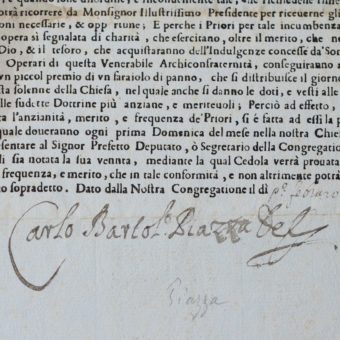 otrà ricorrere da Monsignor Illustrissimo Presidente per riceuerne gli
oni necessarie, & opp rtune; E perche i Priori per tale incumbenza
opera sì segnalata di charità, che esercitano, oltre il merito, che ne
Dio, & il tesoro, che acquistaranno dell'Indulgenze concesse da'So
Operari di questa Venerabile Archiconfraternità, conseguiranno a
vn piccol premio di vn faraiolo di panno, che si distribuisce il giorno
sta solenne della Chiesa, nel quale anche si danno le doti, e vesti alle
alle sudette Dottrine più anziane, e meriteuoli; Perciò ad effetto,
a l'anzianità, merito, e frequenza de'Priori, si è fatta ad essi la p
quale doueranno ogni prima Domenica del mese nella nostra Chie
sentare al Signor Prefetto Deputato, ò Segretario della Congregatio
di sia notata la sua venuta, mediante la qual Cedola verrà prouata
frequenza, e merito, che in tale conformità, e non altrimente potrà
o sopradetto. Dato dalla Nostra Congregatione il dì
Carlo Bartol. Piazza
Piazza